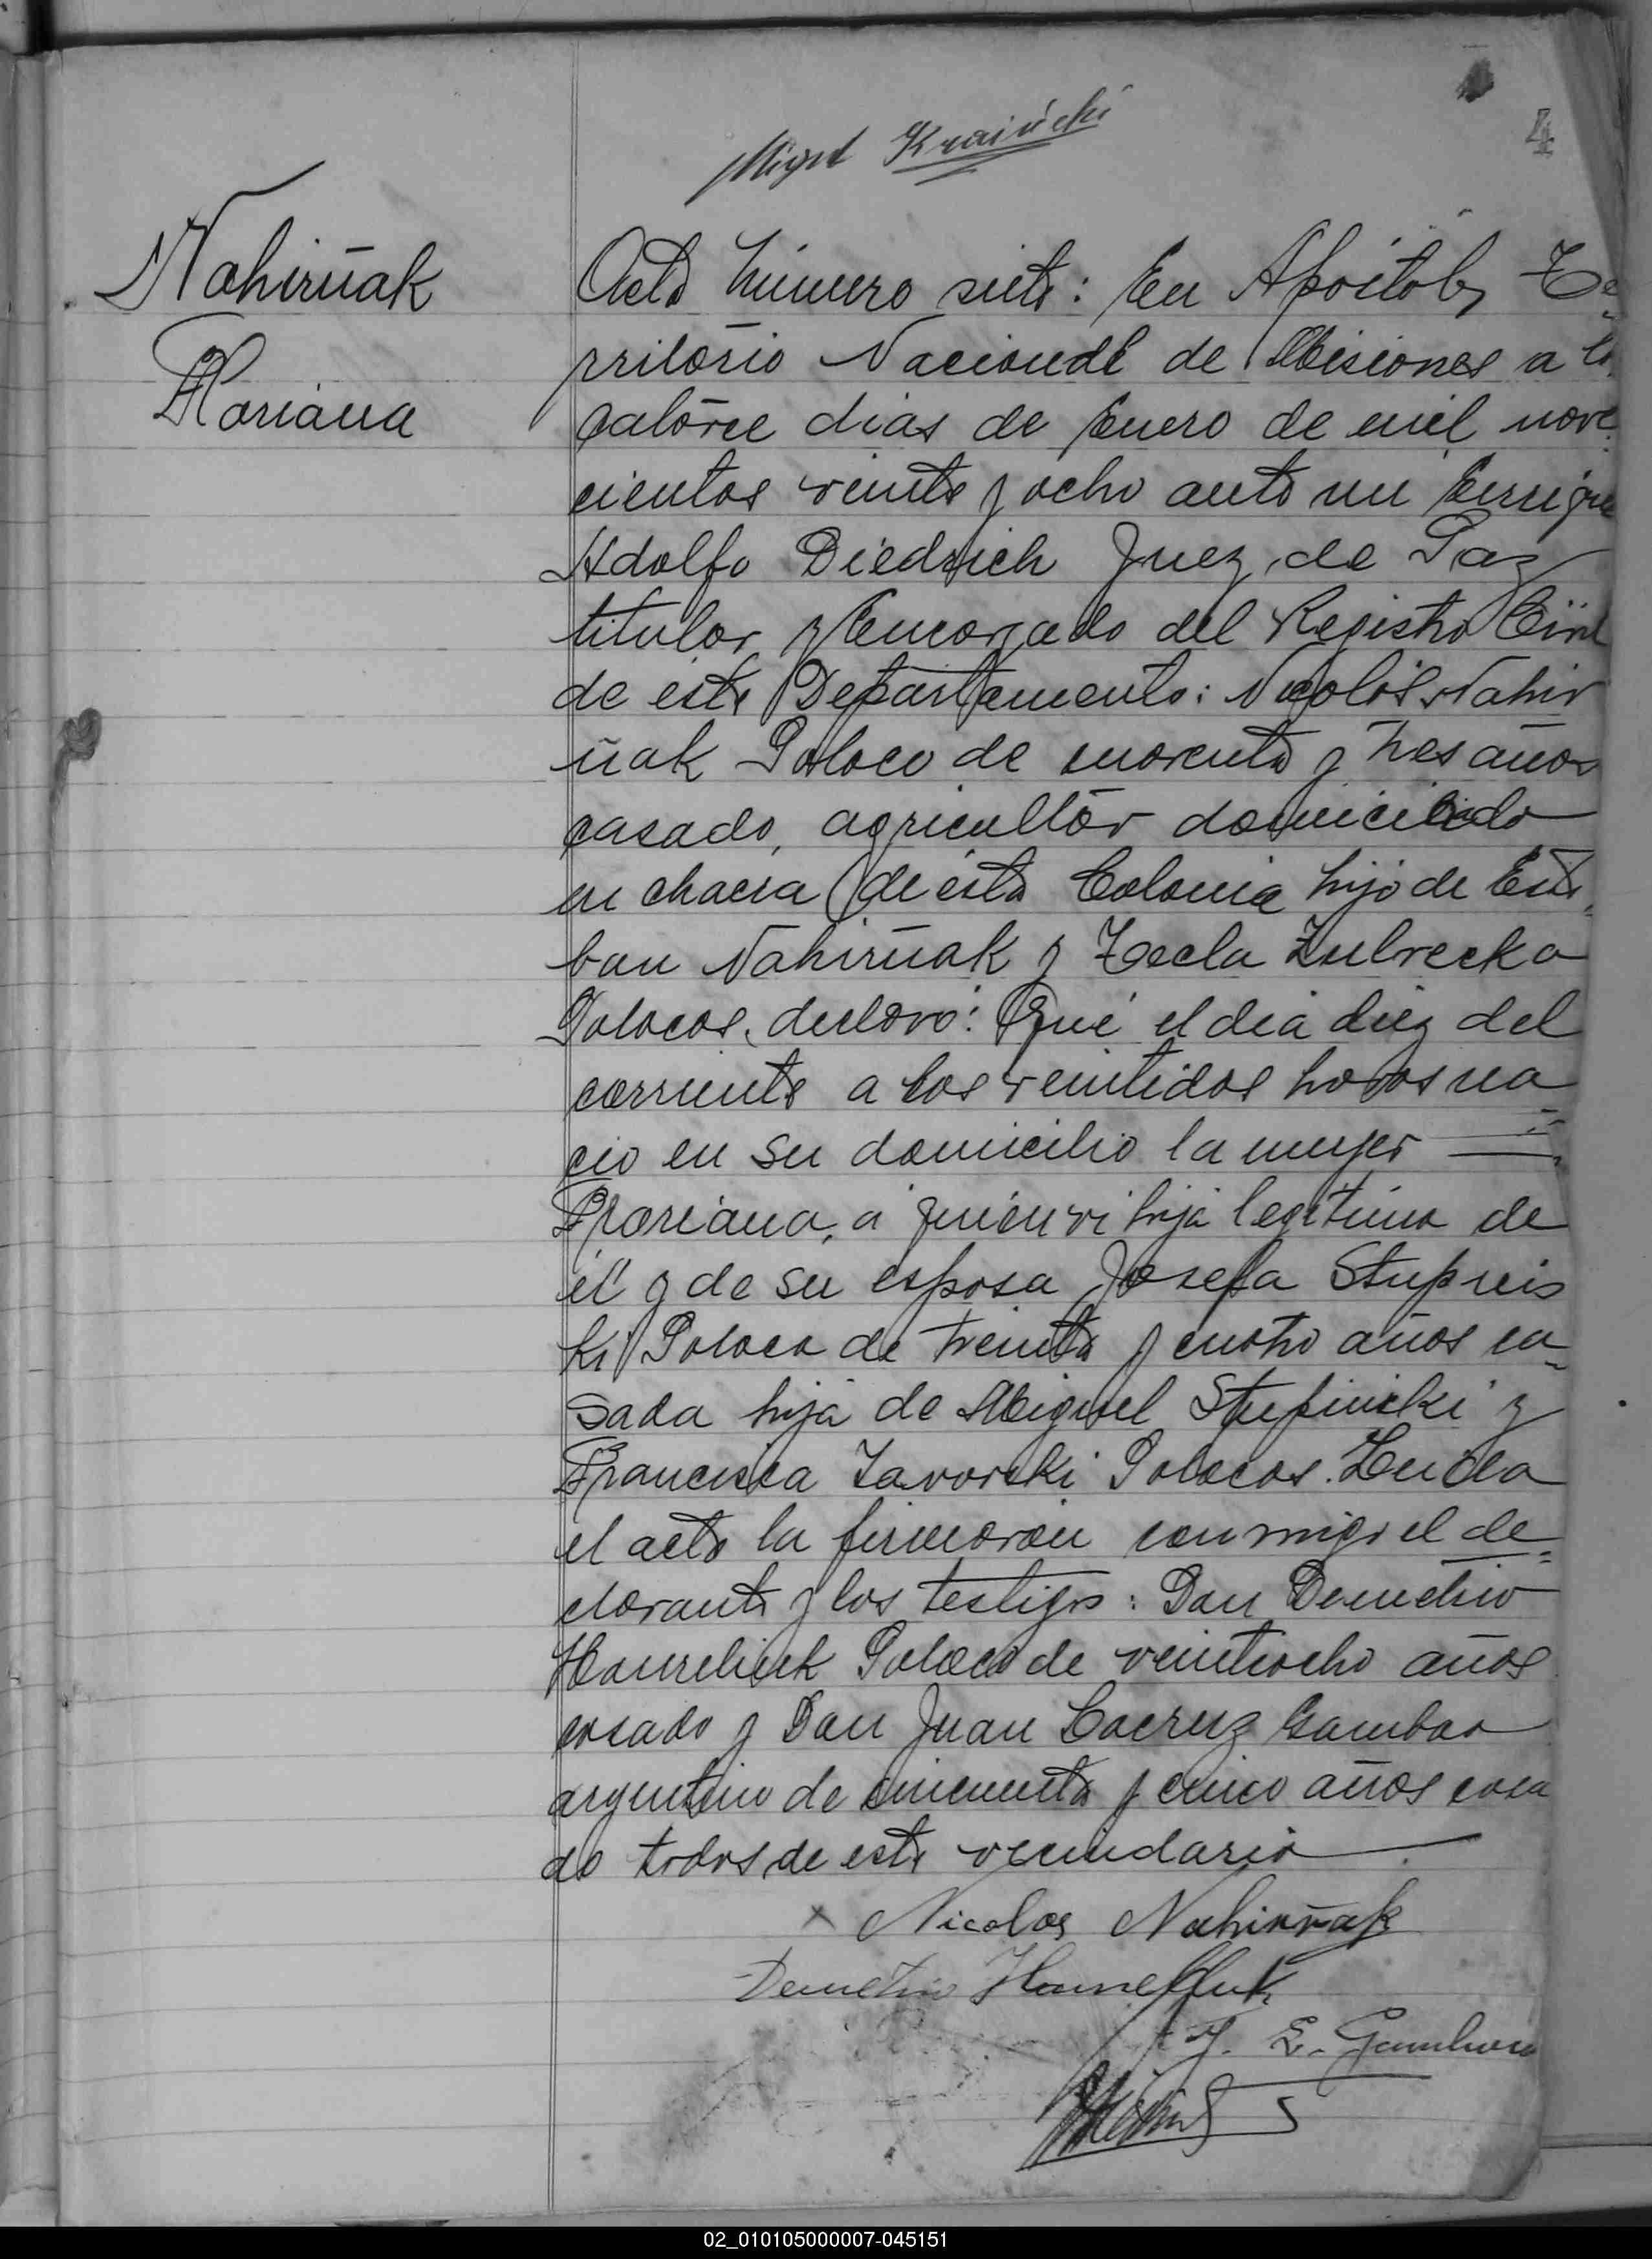 4
Nahirñak
Floriana
Acta número siete: En Apóstoles, Te-
rritorio Nacional de Misiones a los
catorce dias de Enero de mil nove-
cientos veinte y ocho ante mi Enrique
Adolfo Diedrich Juez de Paz
titular y Encargado del Registro Civil
de este Departamento: Nicolás Nahir
ñak Polaco de cuarenta y tres años
casado, agricultor domiciliado
en chacra de ésta Colonia hijo de Este-
ban Nahirñak y Tecla
Polacos, declaró: Qué el día diez del
corriente a las veintidos horas na
ció en su domicilio la mujer
Floriana, a quién vi hija legítima de
él y de su esposa Josefa
ki Polaca de treinta y cuatro años ca-
sada hija de Miguel y
Francisca Javorski Polacos. Leida
el acta la firmaron conmigo el de-
clarante y los testigos: Don Demetrio
Polaco de veintiocho años
casado y Don Juan
argentino de cincuenta y cinco años casa
do todos de este vecindario
x Nicolas Nahirñak
Demetrio
02_010105000007-045151